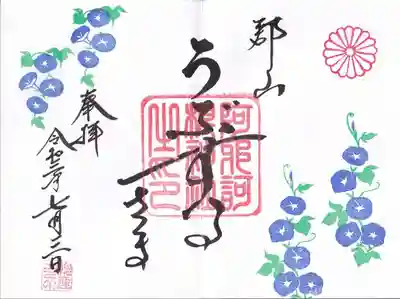 郡山
うぶすな
さま
阿邪訶
根神社
之印
奉拝
令和三年七月三日